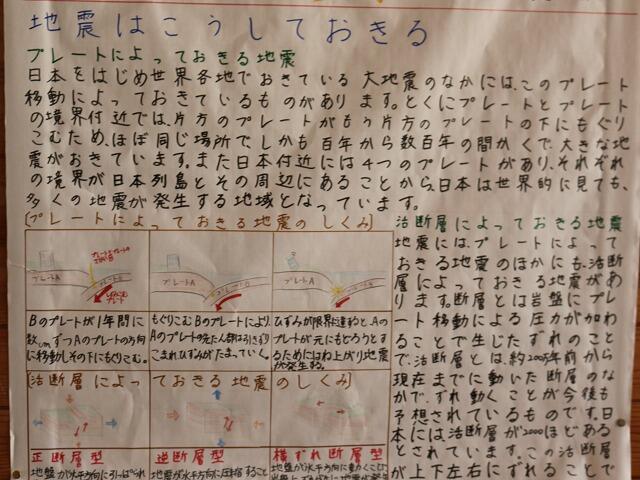 地震はこうしておきる
プレートによっておきる地震
日本をはじめ世界各地でおきている大地震のなかには、このプレート
移動によっておきているものがあります。とくにプレートとプレート
の境界付近では、片方のプレートがもう片方のプレートの下にもぐり
こむため、ほぼ同じ場所で、しかも百年から数百年の間かくで、大きな地
震がおきています。また日本付近には4つのプレートがあり、それぞれ
の境界が日本列島とその周辺にあることから、日本は世界的に見ても、
多くの地震が発生する地域となっています。
[プレートによっておきる地震のしくみ]
プレートA
プレートA
プレートA
Bのプレートが1年間に
数cmずつAのプレートの方向
に移動しその下にもぐりこむ。
もぐりこむBのプレートにより、
Aのプレートの先たん部は引きずり
こまれひずみがたまっていく。
ひずみが限界に達するとAの
プレートが元にもどろうとす
るためにはね上がり地震
が発生する。
[活断層によっておきる地震のしくみ]
正断層型
逆断層型
横ずれ断層型
地盤が水平方向に引っぱられ
地震が水平方向に圧縮すること
地盤が水平方向に動くことで
活断層によっておきる地震
地震には、プレートによって
おきる地震のほかにも、活断
層によっておきる地震があ
ります。断層とは岩盤にプレ
ート移動による圧力が加わ
ることで生じたずれのこと
で、活断層とは、約200万年前から
現在までに動いた断層のな
かで、ずれ動くことが今後も
予想されているものです。日
本には活断層が2000ほどある
とされています。この活断層
が上下左右にずれることで